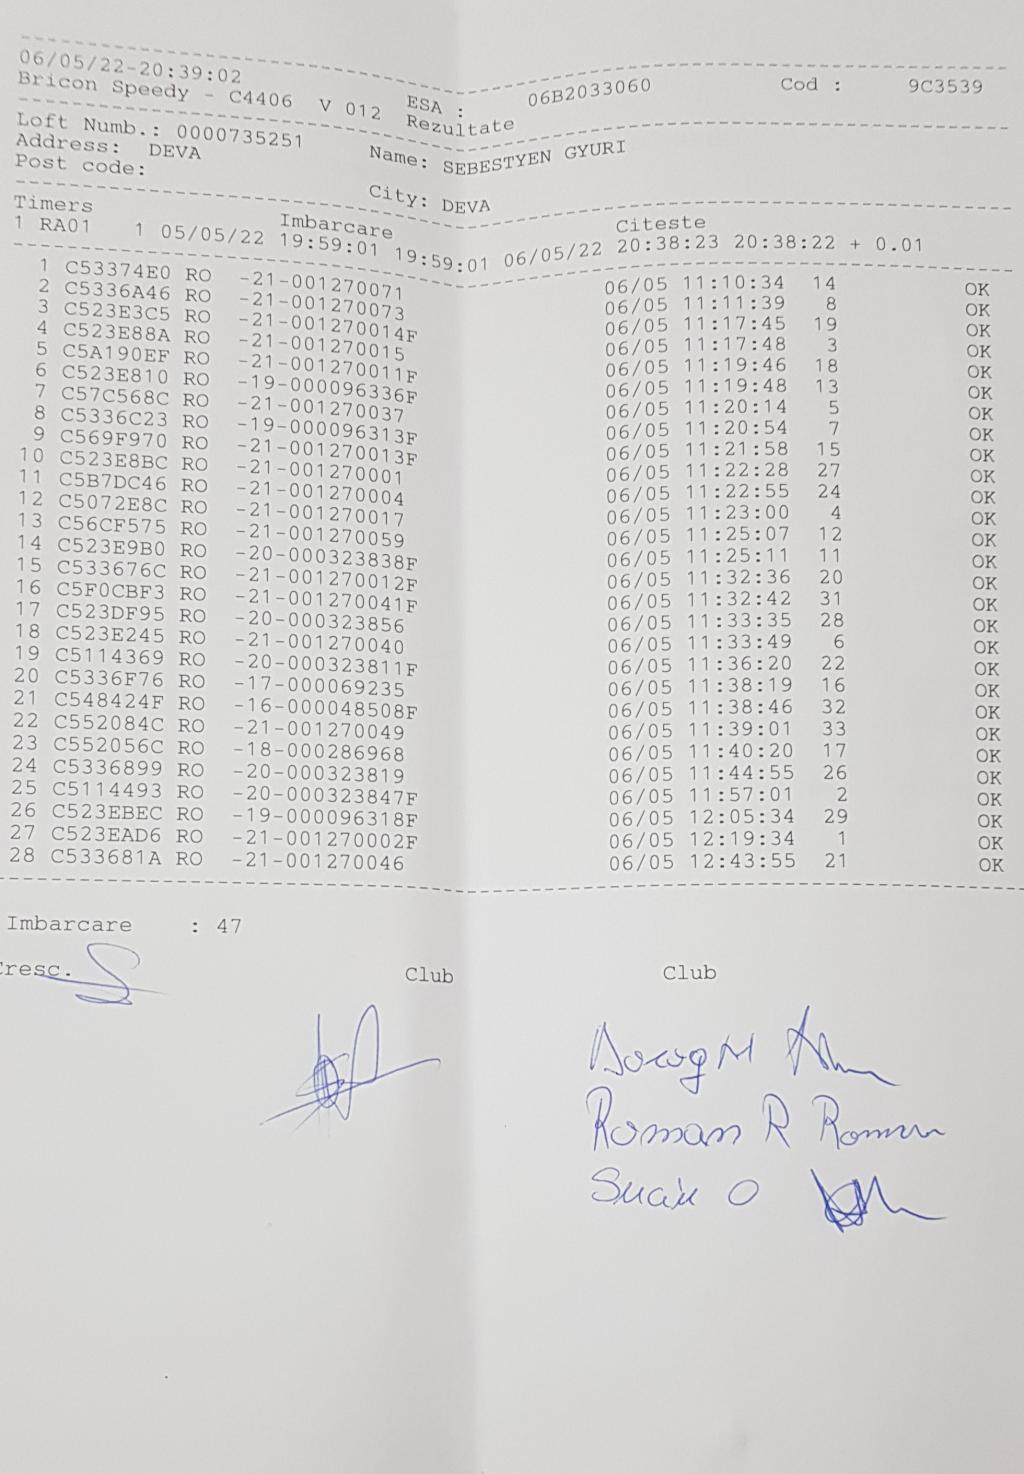 06/05/22-20:39:02
Bricon Speedy - C4406 V 012 ESA : 06B2033060 Cod : 9C3539
Rezultate
Loft Numb.: 0000735251 Name: SEBESTYEN GYURI
Address: DEVA
Post code: City: DEVA
Timers Imbarcare Citeste
1 RA01 1 05/05/22 19:59:01 19:59:01 06/05/22 20:38:23 20:38:22 + 0.01
1 C53374E0 RO -21-001270071 06/05 11:10:34 14 OK
2 C5336A46 RO -21-001270073 06/05 11:11:39 8 OK
3 C523E3C5 RO -21-001270014F 06/05 11:17:45 19 OK
4 C523E88A RO -21-001270015 06/05 11:17:48 3 OK
5 C5A190EF RO -21-001270011F 06/05 11:19:46 18 OK
6 C523E810 RO -19-000096336F 06/05 11:19:48 13 OK
7 C57C568C RO -21-001270037 06/05 11:20:14 5 OK
8 C5336C23 RO -19-000096313F 06/05 11:20:54 7 OK
9 C569F970 RO -21-001270013F 06/05 11:21:58 15 OK
10 C523E8BC RO -21-001270001 06/05 11:22:28 27 OK
11 C5B7DC46 RO -21-001270004 06/05 11:22:55 24 OK
12 C5072E8C RO -21-001270017 06/05 11:23:00 4 OK
13 C56CF575 RO -21-001270059 06/05 11:25:07 12 OK
14 C523E9B0 RO -20-000323838F 06/05 11:25:11 11 OK
15 C533676C RO -21-001270012F 06/05 11:32:36 20 OK
16 C5F0CBF3 RO -21-001270041F 06/05 11:32:42 31 OK
17 C523DF95 RO -20-000323856 06/05 11:33:35 28 OK
18 C523E245 RO -21-001270040 06/05 11:33:49 6 OK
19 C5114369 RO -20-000323811F 06/05 11:36:20 22 OK
20 C5336F76 RO -17-000069235 06/05 11:38:19 16 OK
21 C548424F RO -16-000048508F 06/05 11:38:46 32 OK
22 C552084C RO -21-001270049 06/05 11:39:01 33 OK
23 C552056C RO -18-000286968 06/05 11:40:20 17 OK
24 C5336899 RO -20-000323819 06/05 11:44:55 26 OK
25 C5114493 RO -20-000323847F 06/05 11:57:01 2 OK
26 C523EBEC RO -19-000096318F 06/05 12:05:34 29 OK
27 C523EAD6 RO -21-001270002F 06/05 12:19:34 1 OK
28 C533681A RO -21-001270046 06/05 12:43:55 21 OK
Imbarcare : 47
Cresc. Club Club
Roman R Roman